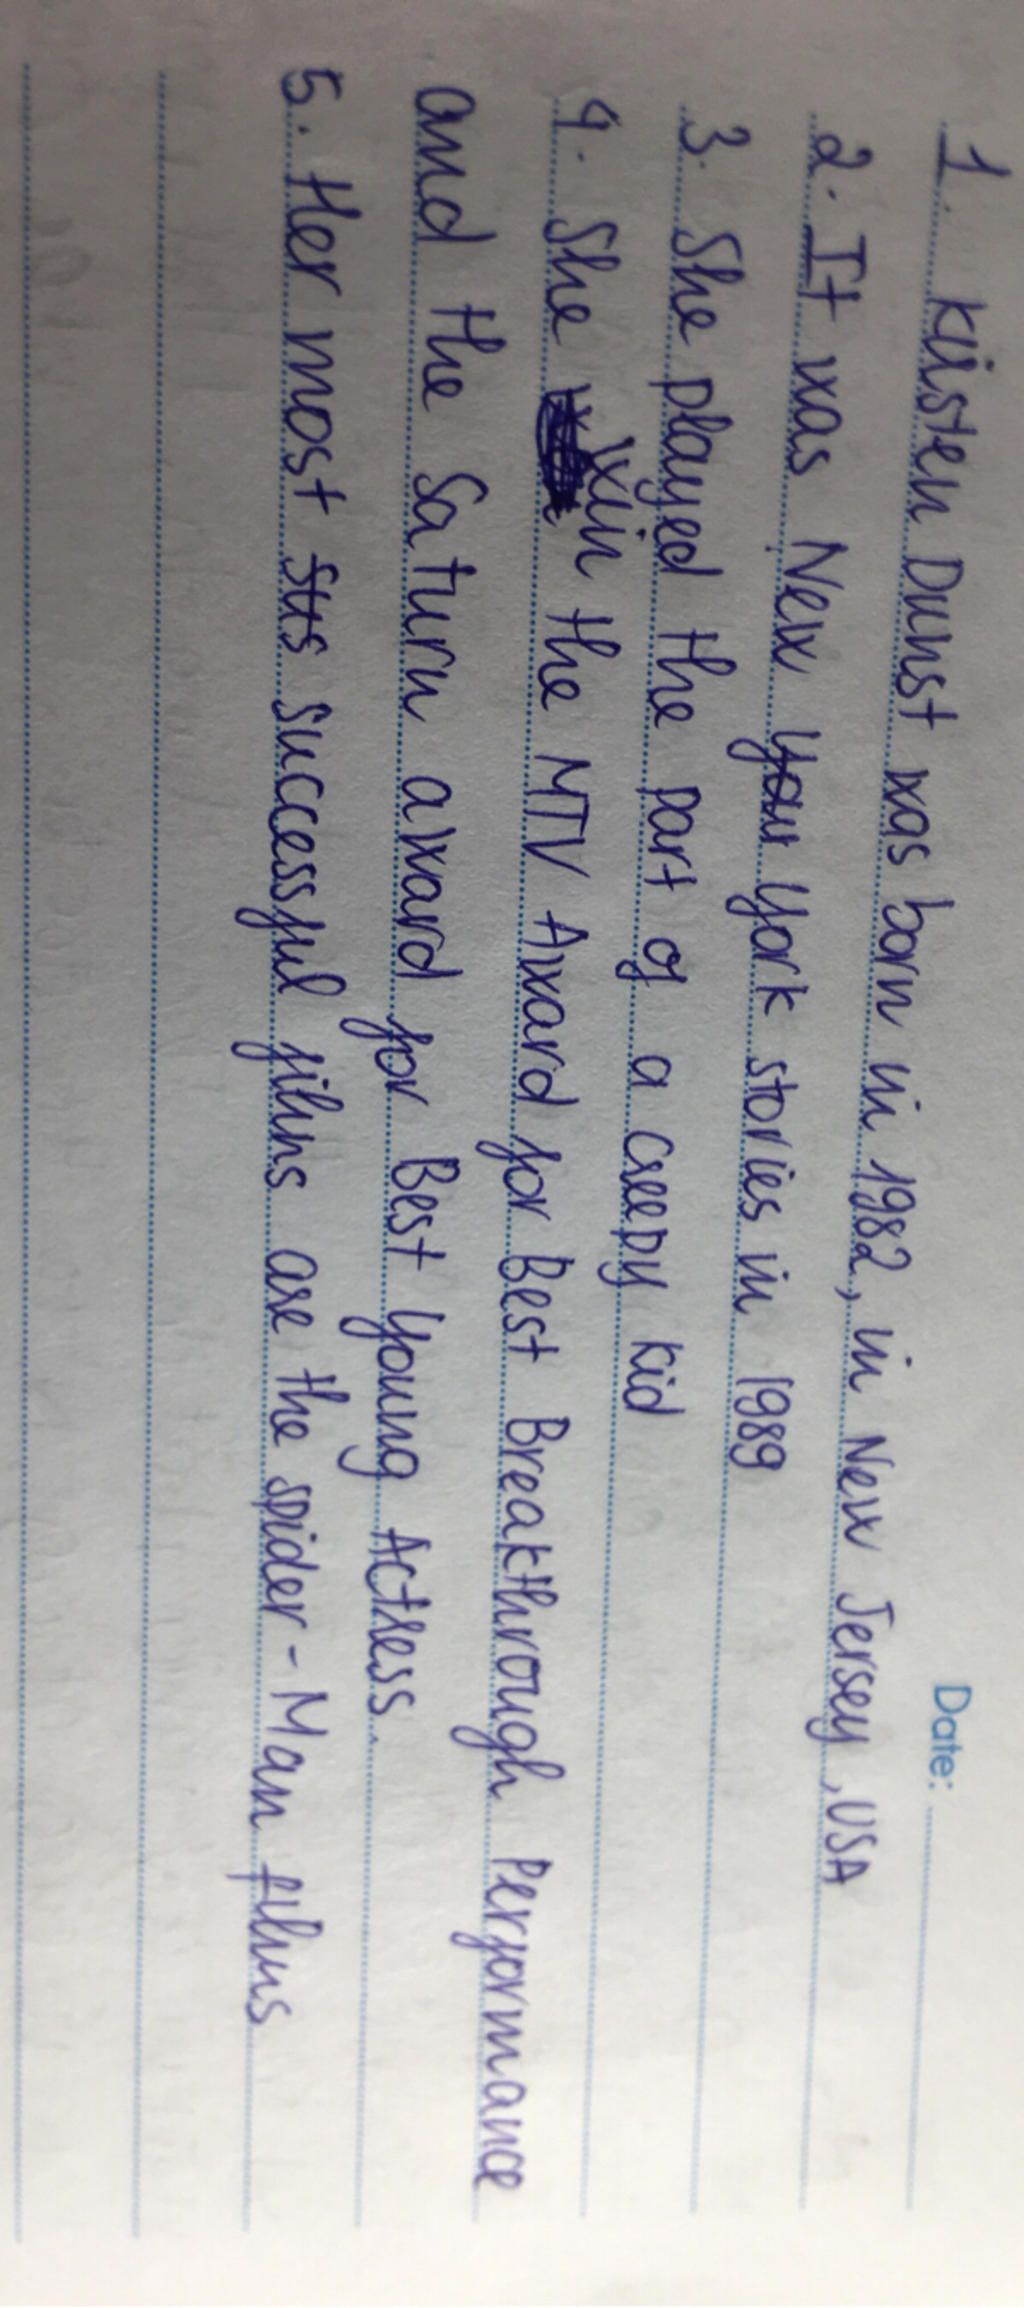 Date:
1. Kristen Dunst was born in 1982, in New Jersey, USA
2. It was New your York stories in 1989
3. She played the part of a creepy kid
4. She win the MTV Award for Best Breakthrough Performance
and the Saturn award for Best Young Actress.
5. Her most sus successful films are the spider-Man films